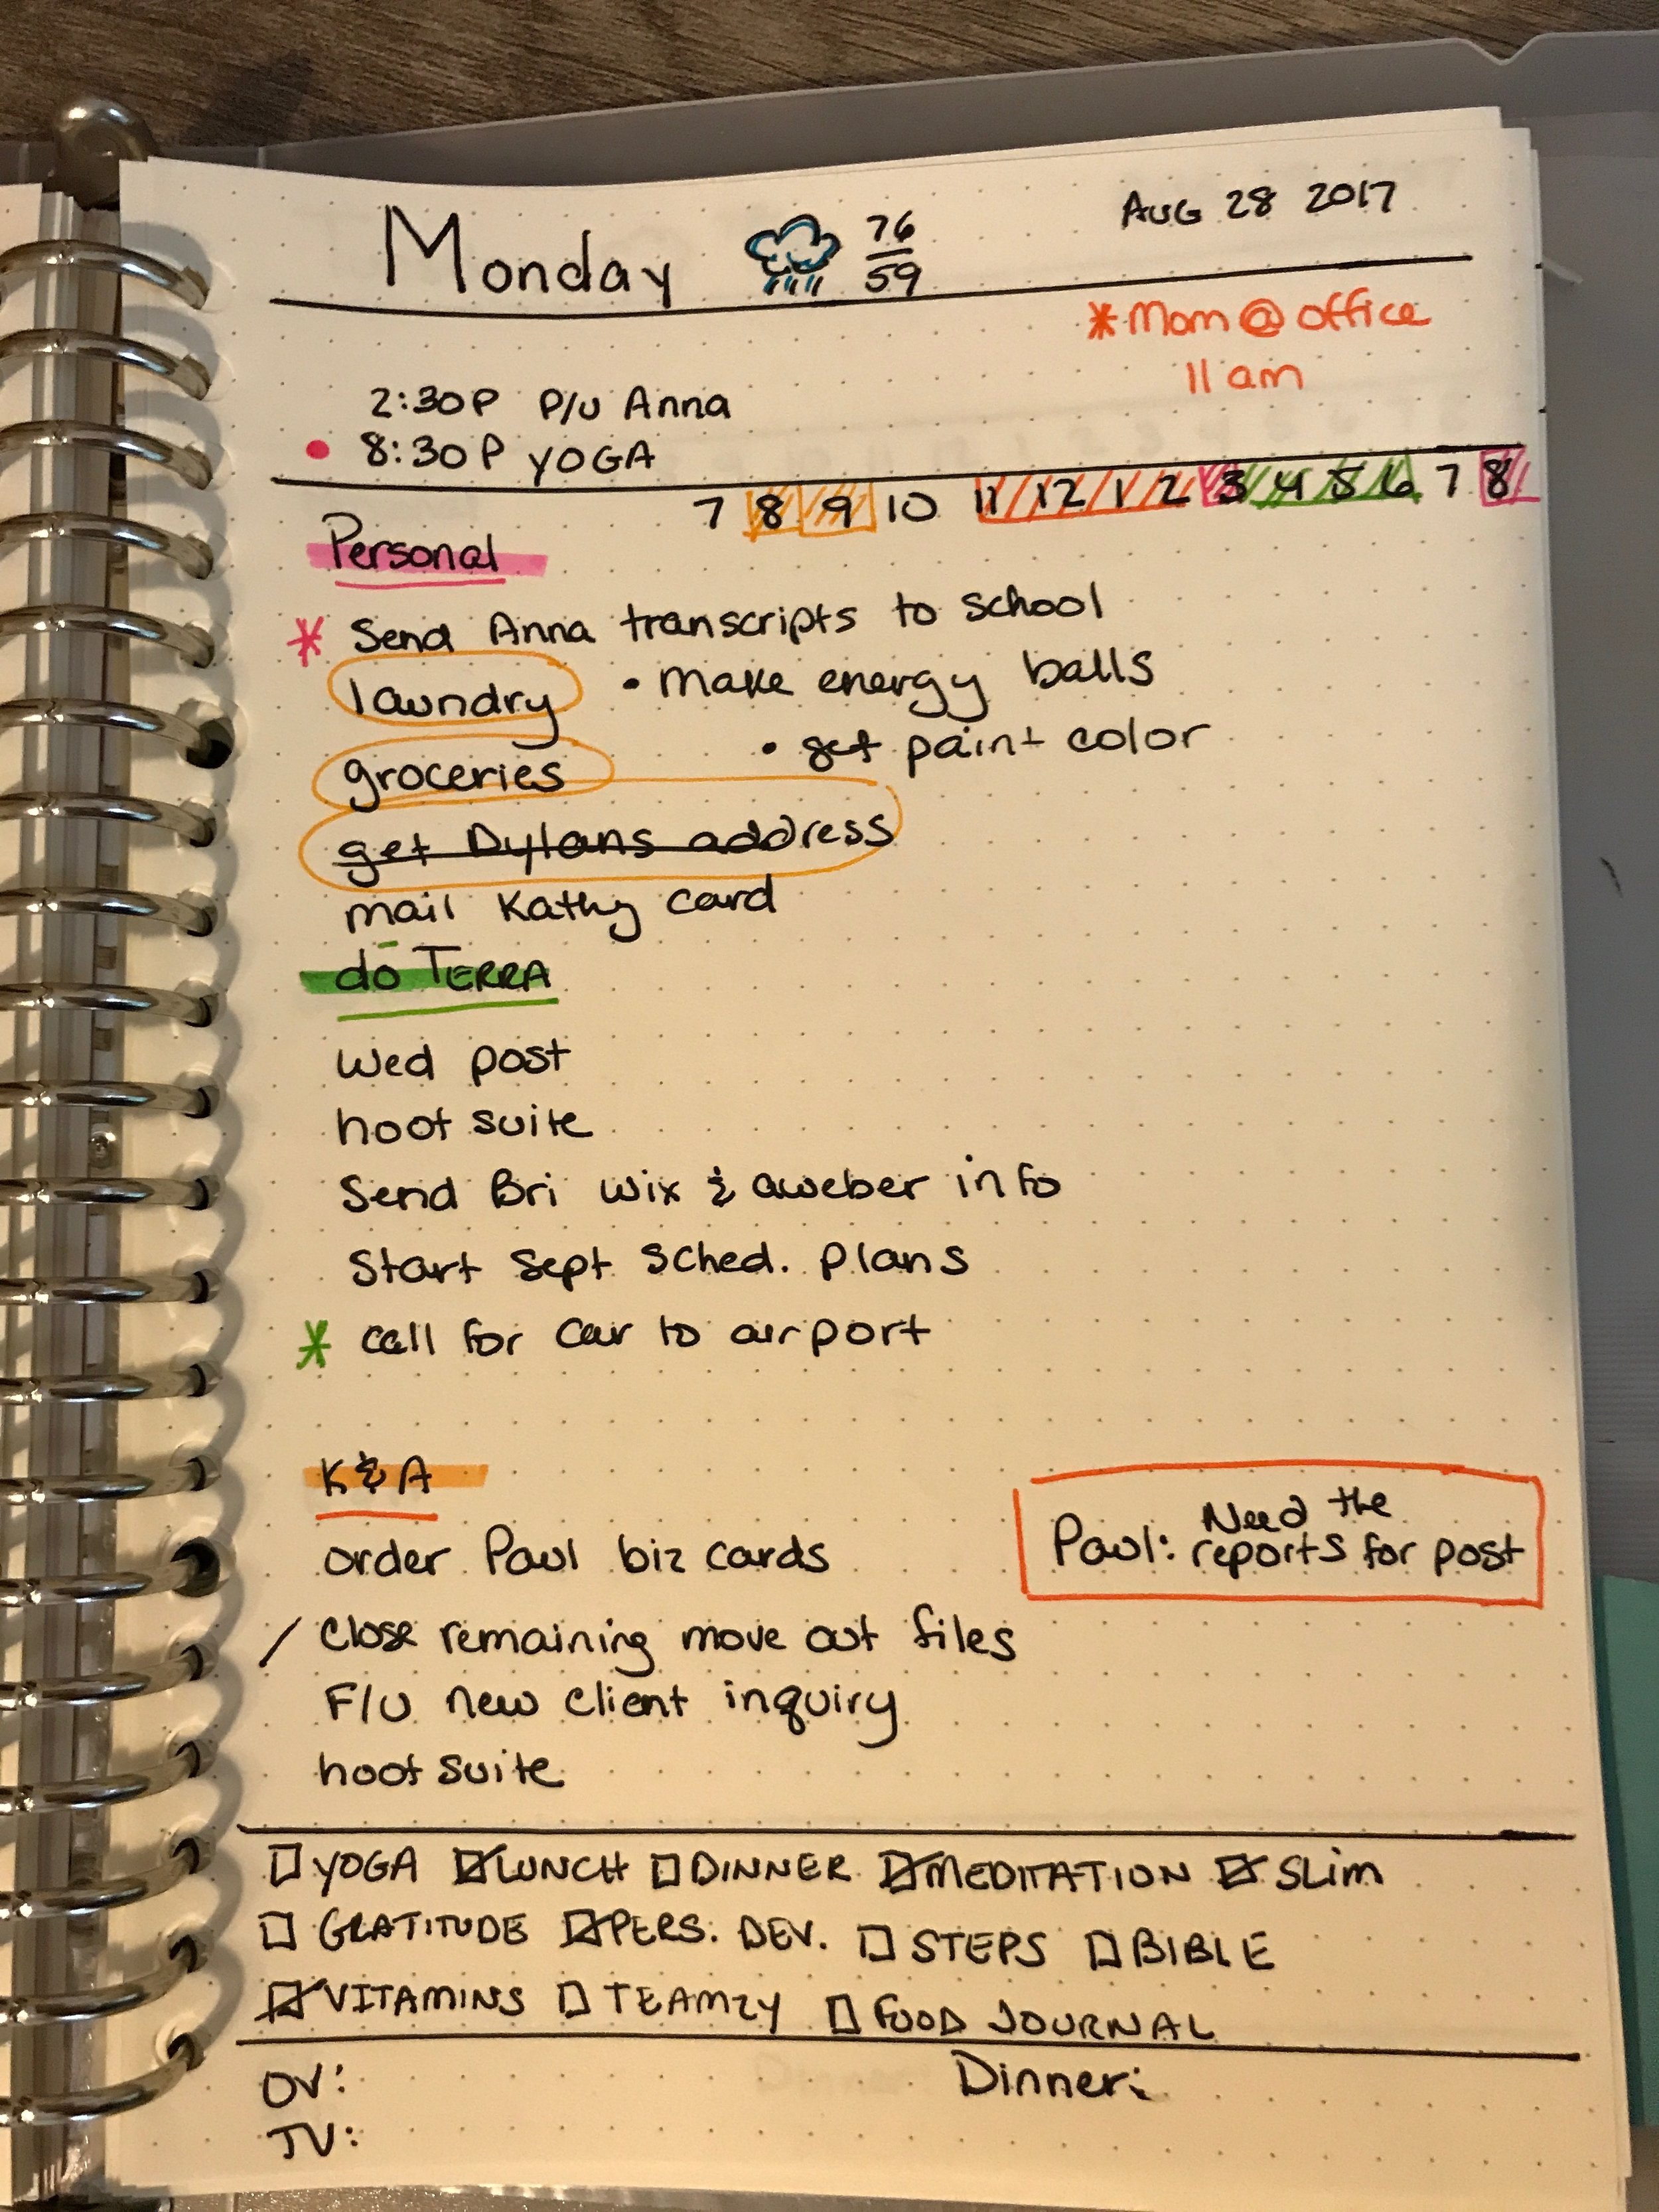 Monday 76/59 AUG 28 2017
*Mom @ office
11 am
2:30P P/U Anna
• 8:30P YOGA
7 8 9 10 11 12 1 2 3 4 5 6 7 8
Personal
* Send Anna transcripts to school
laundry • make energy balls
groceries • get paint color
get Dylans address
mail Kathy card
do TERRA
Wed post
hoot suite
Send Bri Wix & aweber info
Start Sept Sched. Plans
* call for car to airport
K & A
order Paul biz cards
Paul: Need the
reports for post
/ Close remaining move out files
F/U new client inquiry
hoot suite
☐ YOGA ☑ LUNCH ☐ DINNER ☑ MEDITATION ☑ SLIM
☐ GRATITUDE ☑ PERS. DEV. ☐ STEPS ☐ BIBLE
☑ VITAMINS ☐ TEAMZY ☐ FOOD JOURNAL
OV: Dinner:
TV: